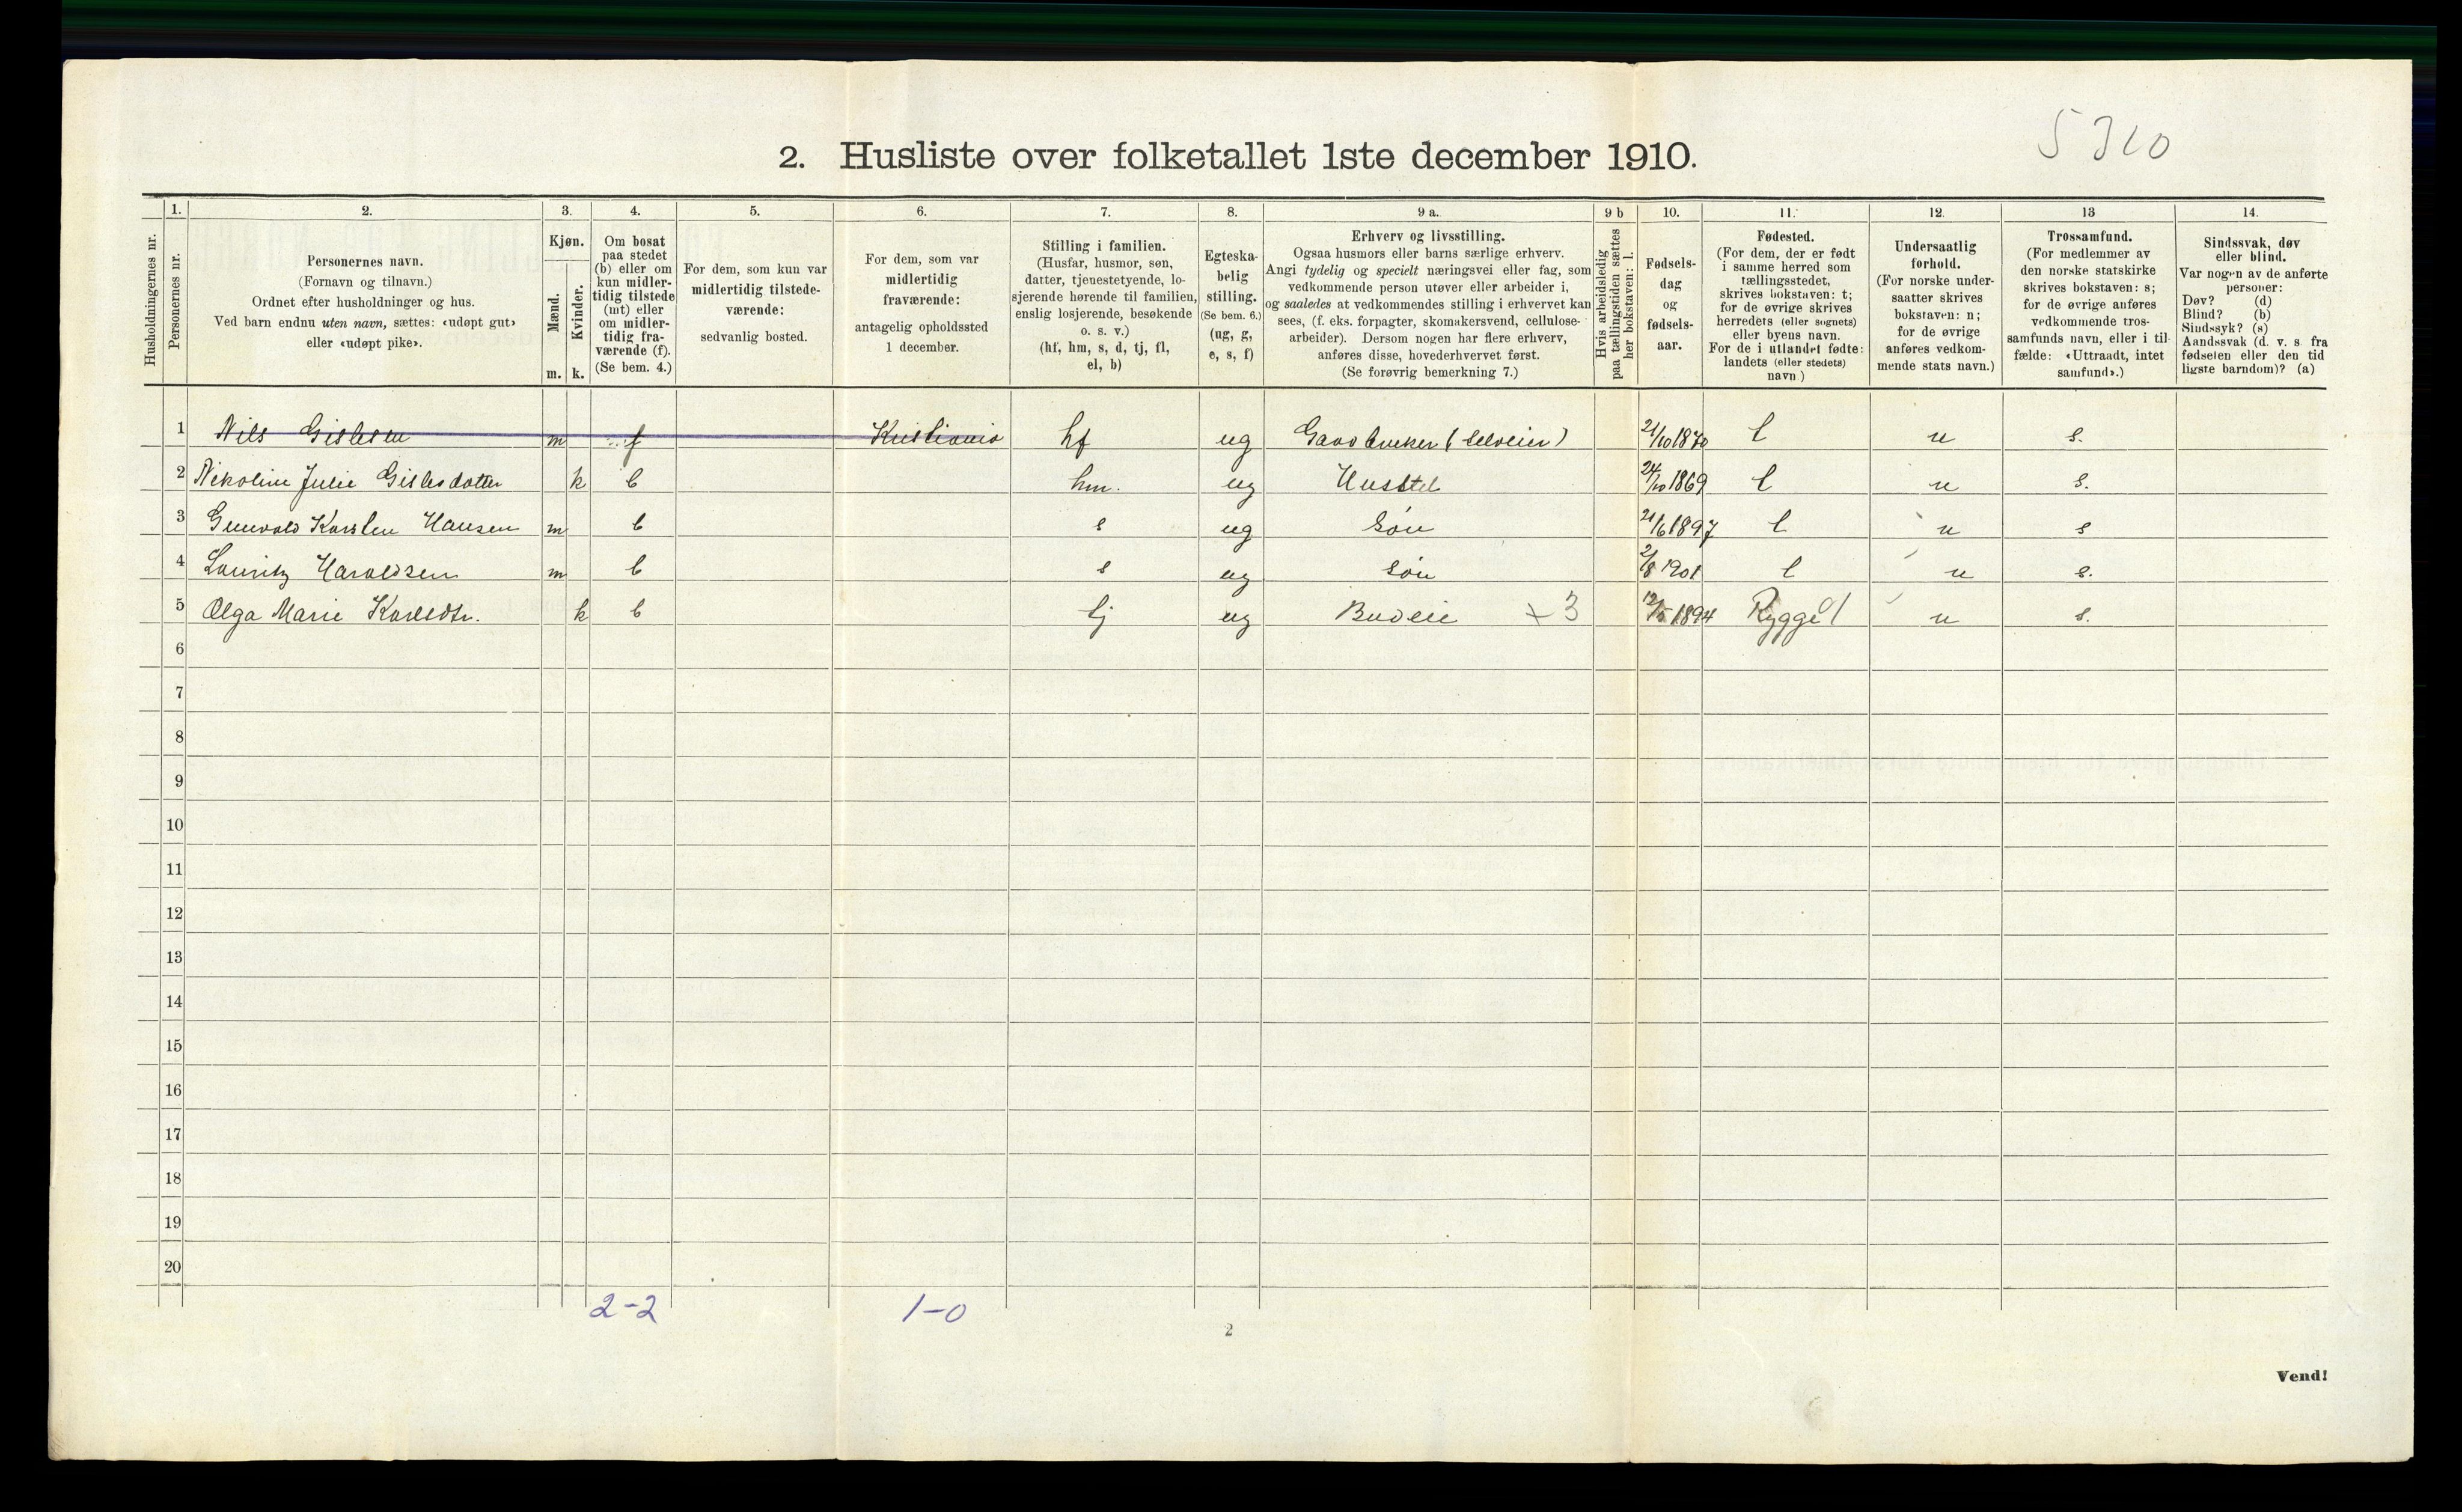 5310
2. Husliste over folketallet 1ste december 1910.
1. 2. 3. 4. 5. 6. 7. 8. 9 a. 9 b 10. 11. 12. 13 14.
Husholdningernes nr.
Personernes nr.
Personernes navn.
(Fornavn og tilnavn.)
Ordnet efter husholdninger og hus.
Ved barn endnu uten navn, sættes: «udøpt gut»
eller «udøpt pike».
Kjøn.
Mænd.
Kvinder.
m. k.
Om bosat
paa stedet
(b) eller om
kun midler-
tidig tilstede
(mt) eller
om midler-
tidig fra-
værende (f).
(Se bem. 4.)
For dem, som kun var
midlertidig tilstede-
værende:
sedvanlig bosted.
For dem, som var
midlertidig
fraværende:
antagelig opholdssted
1 december.
Stilling i familien.
(Husfar, husmor, søn,
datter, tjenestetyende, lo-
sjerende hørende til familien,
enslig losjerende, besøkende
o. s. v.)
(hf, hm, s, d, tj, fl,
el, b)
Egteska-
belig
stilling.
(Se bem. 6.)
(ug, g,
e, s, f)
Erhverv og livsstilling.
Ogsaa husmors eller barns særlige erhverv.
Angi tydelig og specielt næringsvei eller fag, som
vedkommende person utøver eller arbeider i,
og saaledes at vedkommendes stilling i erhvervet kan
sees, (f. eks. forpagter, skomakersvend, cellulose-
arbeider). Dersom nogen har flere erhverv,
anføres disse, hovederhvervet først.
(Se forøvrig bemerkning 7.)
Hvis arbeidsledig
paa tællingstiden sættes
her bokstaven: l.
Fødsels-
dag
og
fødsels-
aar.
Fødested.
(For dem, der er født
i samme herred som
tællingsstedet,
skrives bokstaven: t;
for de øvrige skrives
herredets (eller sognets)
eller byens navn.
For de i utlandet fødte:
landets (eller stedets)
navn.)
Undersaatlig
forhold.
(For norske under-
saatter skrives
bokstaven: n;
for de øvrige
anføres vedkom-
mende stats navn.)
Trossamfund.
(For medlemmer av
den norske statskirke
skrives bokstaven: s;
for de øvrige anføres
vedkommende tros-
samfunds navn, eller i til-
fælde: «Uttraadt, intet
samfund».)
Sindssvak, døv
eller blind.
Var nogen av de anførte
personer:
Døv? (d)
Blind? (b)
Sindssyk? (s)
Aandssvak (d. v. s. fra
fødselen eller den tid-
ligste barndom)? (a)
1 Nils Gislesen m f Kristiania hf ug Gaardbruker (selveier) 21/10 1870 t n s.
2 Nikoline Julie Gislesdatter k b hm. ug Husstel 24/10 1869 t n s.
3 Gunvald Karsten Hansen m b s ug Søn 21/6 1897 t n s
4 Lauritz Haraldsen m b s ug Søn 2/8 1901 t n s.
5 Olga Marie Karlsdtr. k b tj ug Budeie × 3 12/5 1894 Rygge 01 n s.
6
7
8
9
10
11
12
13
14
15
16
17
18
19
20
2-2 1-0
2
Vend!